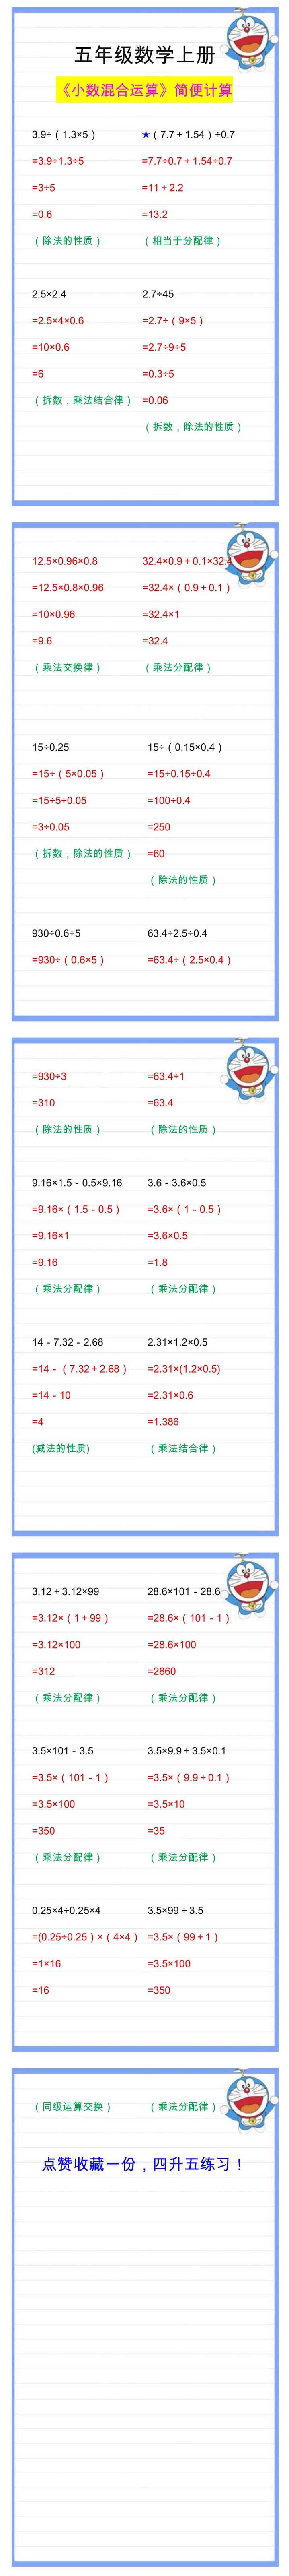 五年级数学上册
《小数混合运算》简便计算
3.9÷（1.3×5）
=3.9÷1.3÷5
=3÷5
=0.6
（除法的性质）
★（7.7＋1.54）÷0.7
=7.7÷0.7＋1.54÷0.7
=11＋2.2
=13.2
（相当于分配律）
2.5×2.4
=2.5×4×0.6
=10×0.6
=6
（拆数，乘法结合律）
2.7÷45
=2.7÷（9×5）
=2.7÷9÷5
=0.3÷5
=0.06
（拆数，除法的性质）
12.5×0.96×0.8
=12.5×0.8×0.96
=10×0.96
=9.6
（乘法交换律）
32.4×0.9＋0.1×32.4
=32.4×（0.9＋0.1）
=32.4×1
=32.4
（乘法分配律）
15÷0.25
=15÷（5×0.05）
=15÷5÷0.05
=3÷0.05
（拆数，除法的性质）
15÷（0.15×0.4）
=15÷0.15÷0.4
=100÷0.4
=250
=60
（除法的性质）
930÷0.6÷5
=930÷（0.6×5）
63.4÷2.5÷0.4
=63.4÷（2.5×0.4）
=930÷3
=310
（除法的性质）
=63.4÷1
=63.4
（除法的性质）
9.16×1.5－0.5×9.16
=9.16×（1.5－0.5）
=9.16×1
=9.16
（乘法分配律）
3.6－3.6×0.5
=3.6×（1－0.5）
=3.6×0.5
=1.8
（乘法分配律）
14－7.32－2.68
=14－（7.32＋2.68）
=14－10
=4
(减法的性质)
2.31×1.2×0.5
=2.31×(1.2×0.5)
=2.31×0.6
=1.386
（乘法结合律）
3.12＋3.12×99
=3.12×（1＋99）
=3.12×100
=312
（乘法分配律）
28.6×101－28.6
=28.6×（101－1）
=28.6×100
=2860
（乘法分配律）
3.5×101－3.5
=3.5×（101－1）
=3.5×100
=350
（乘法分配律）
3.5×9.9＋3.5×0.1
=3.5×（9.9＋0.1）
=3.5×10
=35
（乘法分配律）
0.25×4÷0.25×4
=(0.25÷0.25）×（4×4）
=1×16
=16
3.5×99＋3.5
=3.5×（99＋1）
=3.5×100
=350
（同级运算交换）
（乘法分配律）
点赞收藏一份，四升五练习！